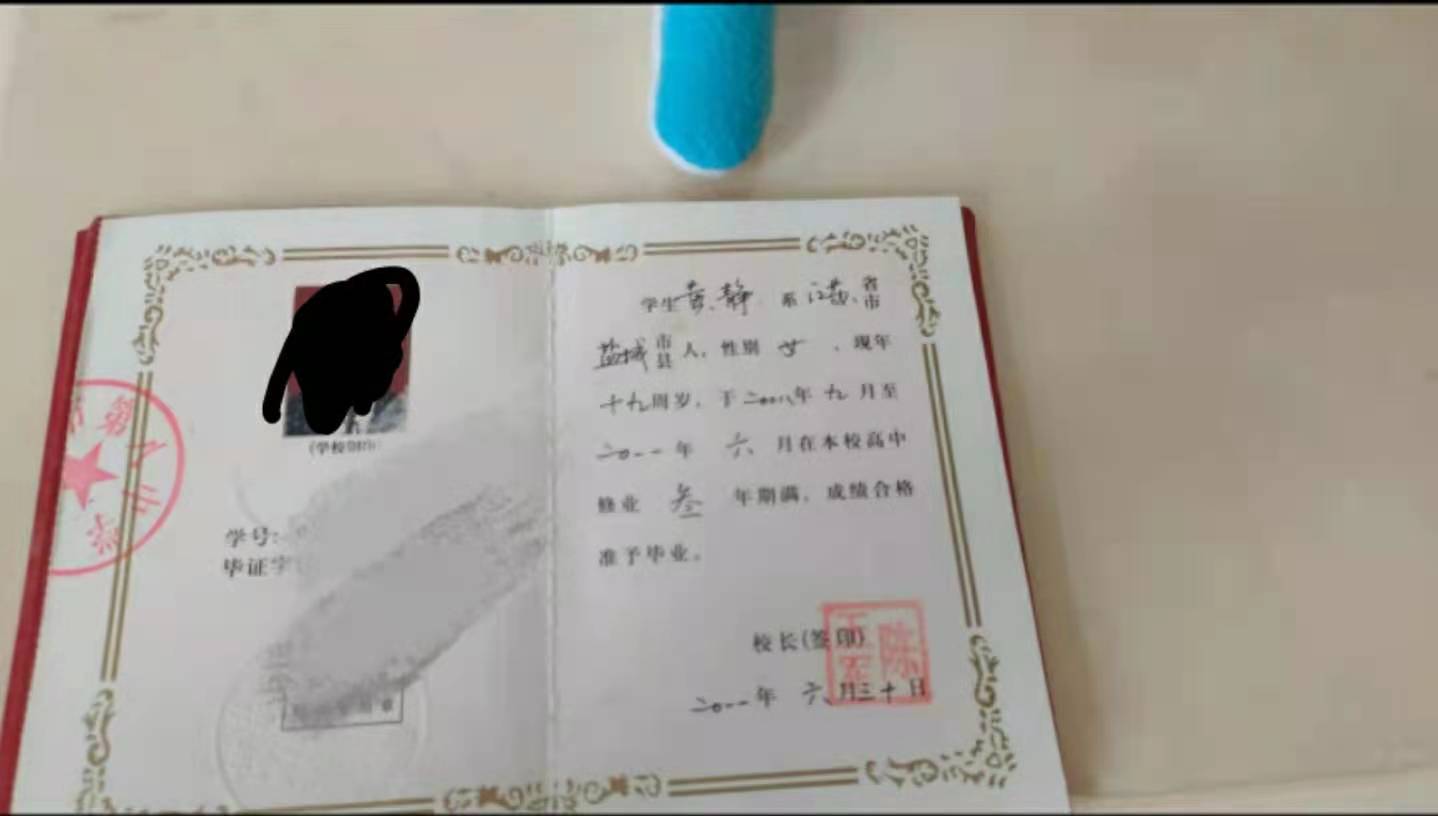 (学校钢印)
学号:
毕证字
学生黄静 系江苏省市
盐城市县人，性别女，现年
十九周岁，于二00八年九月至
二0一一年 六 月在本校高中
修业 叁 年期满，成绩合格
准予毕业。
校长(签印)
二0一一年 六月三十日